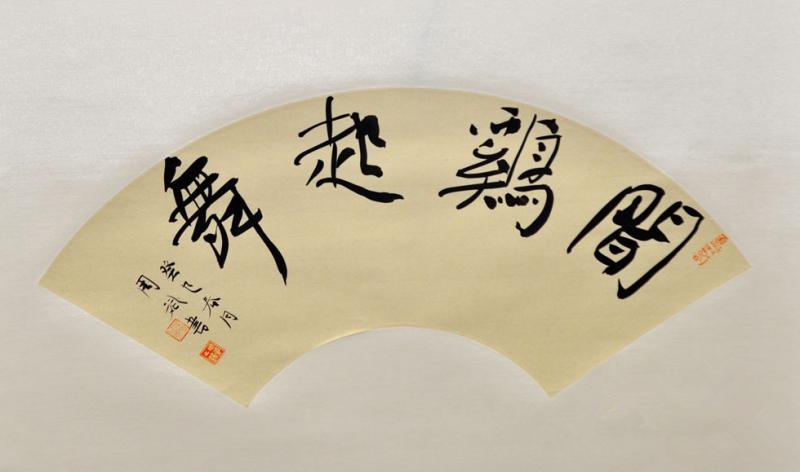 聞鷄起舞
癸巳春月
周斌書